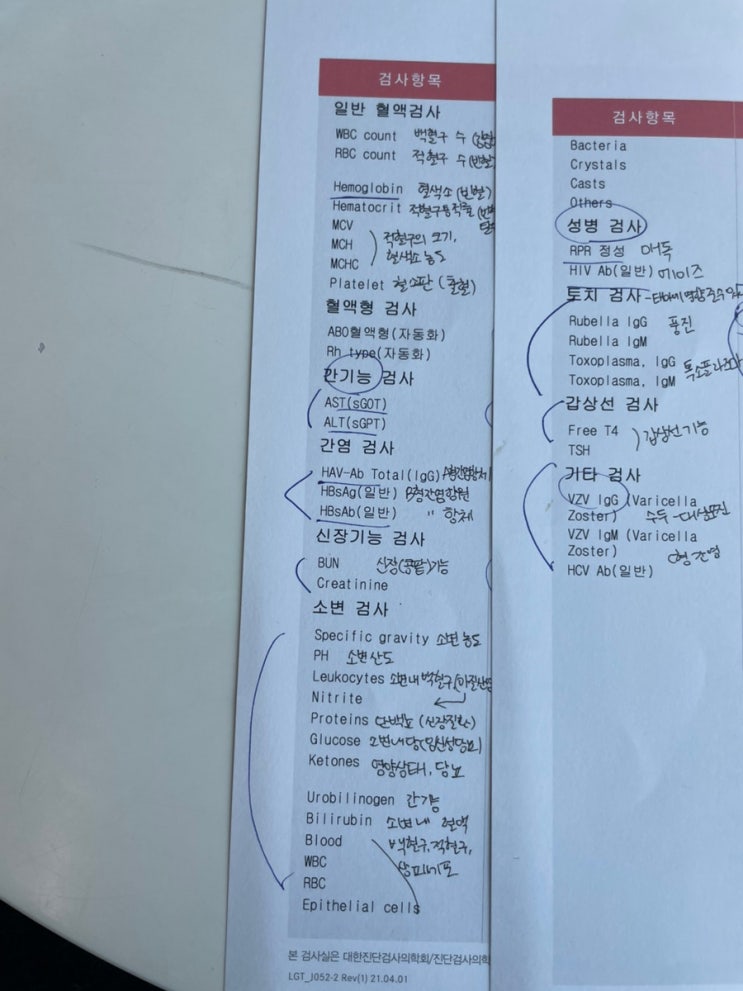 검사항목
일반 혈액검사
WBC count 백혈구 수
RBC count 적혈구 수 (빈혈)
Hemoglobin 혈색소 (빈혈)
Hematocrit 적혈구용적률
MCV
MCH 적혈구의 크기,
MCHC 혈색소 농도
Platelet 혈소판 (출혈)
혈액형 검사
ABO혈액형(자동화)
Rh type(자동화)
간기능 검사
AST(sGOT)
ALT(sGPT)
간염 검사
HAV-Ab Total(IgG) A형간염항체
HBsAg(일반) B형간염항원
HBsAb(일반) " 항체
신장기능 검사
BUN 신장(콩팥)기능
Creatinine
소변 검사
Specific gravity 소변 농도
PH 소변산도
Leukocytes 소변내 백혈구
Nitrite
Proteins 단백뇨 (신장질환)
Glucose 소변내당(임신성당뇨)
Ketones 영양상태, 당뇨
Urobilinogen 간기능
Bilirubin 소변내 혈액
Blood 백혈구, 적혈구,
WBC 상피세포
RBC
Epithelial cells
본 검사실은 대한진단검사의학회/진단검사의학
LGT_J052-2 Rev(1) 21.04.01
검사항목
Bacteria
Crystals
Casts
Others
성병 검사
RPR 정성 매독
HIV Ab(일반) 에이즈
토치 검사
Rubella IgG 풍진
Rubella IgM
Toxoplasma, IgG 톡소플라즈마
Toxoplasma, IgM
갑상선 검사
Free T4 갑상선기능
TSH
기타 검사
VZV IgG (Varicella
Zoster) 수두-대상포진
VZV IgM (Varicella
Zoster)
HCV Ab(일반) C형 간염